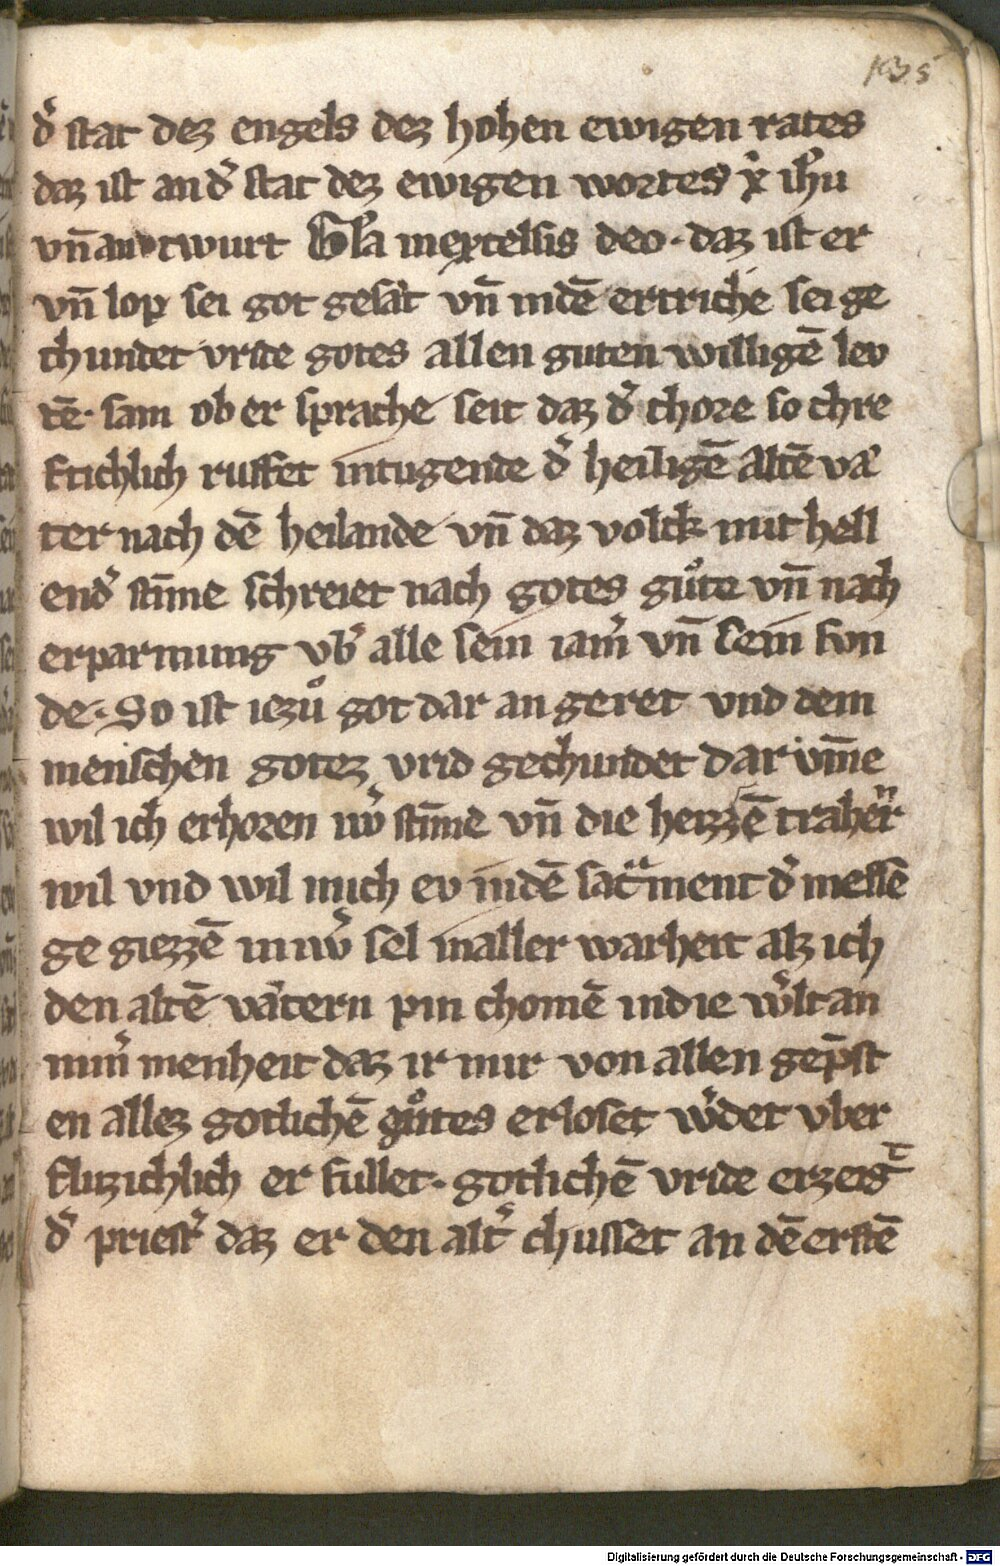 135
d̾ stat dez engels dez hohen ewigen rates
daz ist an d̾ stat dez ewigen wortes xp̄i ih̄u
vn̄ antwurt Gl̄a in excelsis deo · daz ist er
vn̄ lop sei got gesāt vn̄ in dē ertriche sei ge
chundet vride gotes allen guten willigē lev
tē · sam ob er sprache seit daz d̾ chore so chre
ftichlich ruffet in tugende d̾ heiligē altē va
ter nach dē heilande vn̄ daz volck mit hell
end̾ stīme schreiet nach gotes guͦte vn̄ nach
erparmung vb̾ alle sein iam̾ vn̄ sein svn
de · So ist iezuͦ got dar an geret vnd dem
menschen gotez vrid gechundet dar vm̄e
wil ich erhoren iw̾ stīme vn̄ die herzzē trahērn
wil vnd wil mich ev in dē sac̄ment d̾ messē
ge giezzē in iw̾ sel in aller warheit alz ich
den altē vätern pin chomē in die w̾lt an
min̾ menheit daz ir mir von allen gep̄st
en allez gotlichē guͦtes erloset w̾det vber
fluzichlich er fullet · gotlichē vride erzeigt
d̾ priest̾ daz er den alt̾ chusset an dē erstē
Digitalisierung gefördert durch die Deutsche Forschungsgemeinschaft - DFG